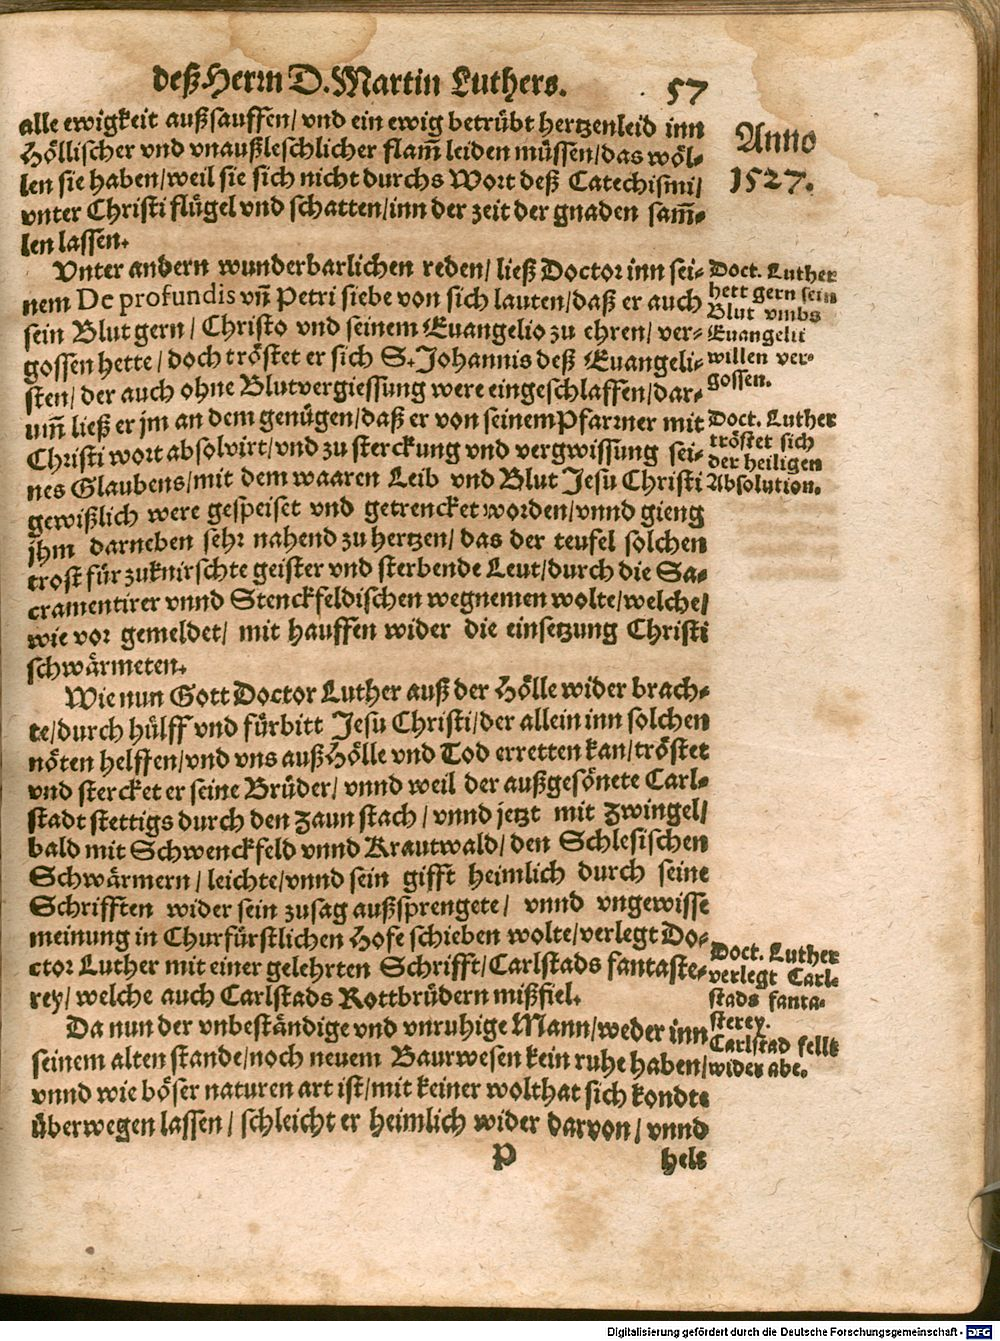 deß Herrn D. Martin Luthers. 57
alle ewigkeit außsauffen/ vnd ein ewig betrübt hertzenleid inn
Höllischer vnd vnaußleschlicher flam̃ leiden müssen/ das wöl-
len sie haben/ weil sie sich nicht durchs Wort deß Catechismi/
vnter Christi flügel vnd schatten/ inn der zeit der gnaden sam̃-
len lassen.
Anno
1527.
Vnter andern wunderbarlichen reden/ ließ Doctor inn sei-
nem De profundis vñ Petri siebe von sich lauten/ daß er auch
sein Blut gern/ Christo vnd seinem Euangelio zu ehren/ ver-
gossen hette/ doch tröstet er sich S. Johannis deß Euangeli-
sten/ der auch ohne Blutvergiessung were eingeschlaffen/ dar-
um̃ ließ er jm an dem genügen/ daß er von seinem Pfarrner mit
Christi wort absolvirt/ vnd zu sterckung vnd vergwissung sei-
nes Glaubens/ mit dem waaren Leib vnd Blut Jesu Christi
gewißlich were gespeiset vnd getrencket worden/ vnnd gieng
jhm darneben sehr nahend zu hertzen/ das der teufel solchen
trost für zuknirschte geister vnd sterbende Leut/ durch die Sa-
cramentirer vnnd Stenckfeldischen wegnemen wolte/ welche/
wie vor gemeldet/ mit hauffen wider die einsetzung Christi
schwärmeten.
Doct. Luther
hett gern sein
Blut vmbs
Euangelii
willen ver-
gossen.
Doct. Luther
tröstet sich
der heiligen
Absolution.
Wie nun Gott Doctor Luther auß der Hölle wider brach-
te/ durch hülff vnd fürbitt Jesu Christi/ der allein inn solchen
nöten helffen/ vnd vns auß Hölle vnd Tod erretten kan/ tröstet
vnd stercket er seine Brüder/ vnnd weil der außgesönete Carl-
stadt stettigs durch den Zaun stach/ vnnd jetzt mit Zwingel/
bald mit Schwenckfeld vnnd Krautwald/ den Schlesischen
Schwärmern/ leichte/ vnnd sein gifft heimlich durch seine
Schrifften wider sein zusag außsprengete/ vnnd vngewisse
meinung in Churfürstlichen Hofe schieben wolte/ verlegt Do-
ctor Luther mit einer gelehrten Schrifft/ Carlstads fantaste-
rey/ welche auch Carlstads Rottbrüdern mißfiel.
Doct. Luther
verlegt Carl-
stads fanta-
sterey.
Da nun der vnbeständige vnd vnruhige Mann/ weder inn
seinem alten stande/ noch neuem Baurwesen kein ruhe haben/
vnnd wie böser naturen art ist/ mit keiner wolthat sich kondte
überwegen lassen/ schleicht er heimlich wider darvon/ vnnd
Carlstad fellt
wider abe.
P hels
Digitalisierung gefördert durch die Deutsche Forschungsgemeinschaft - DFG